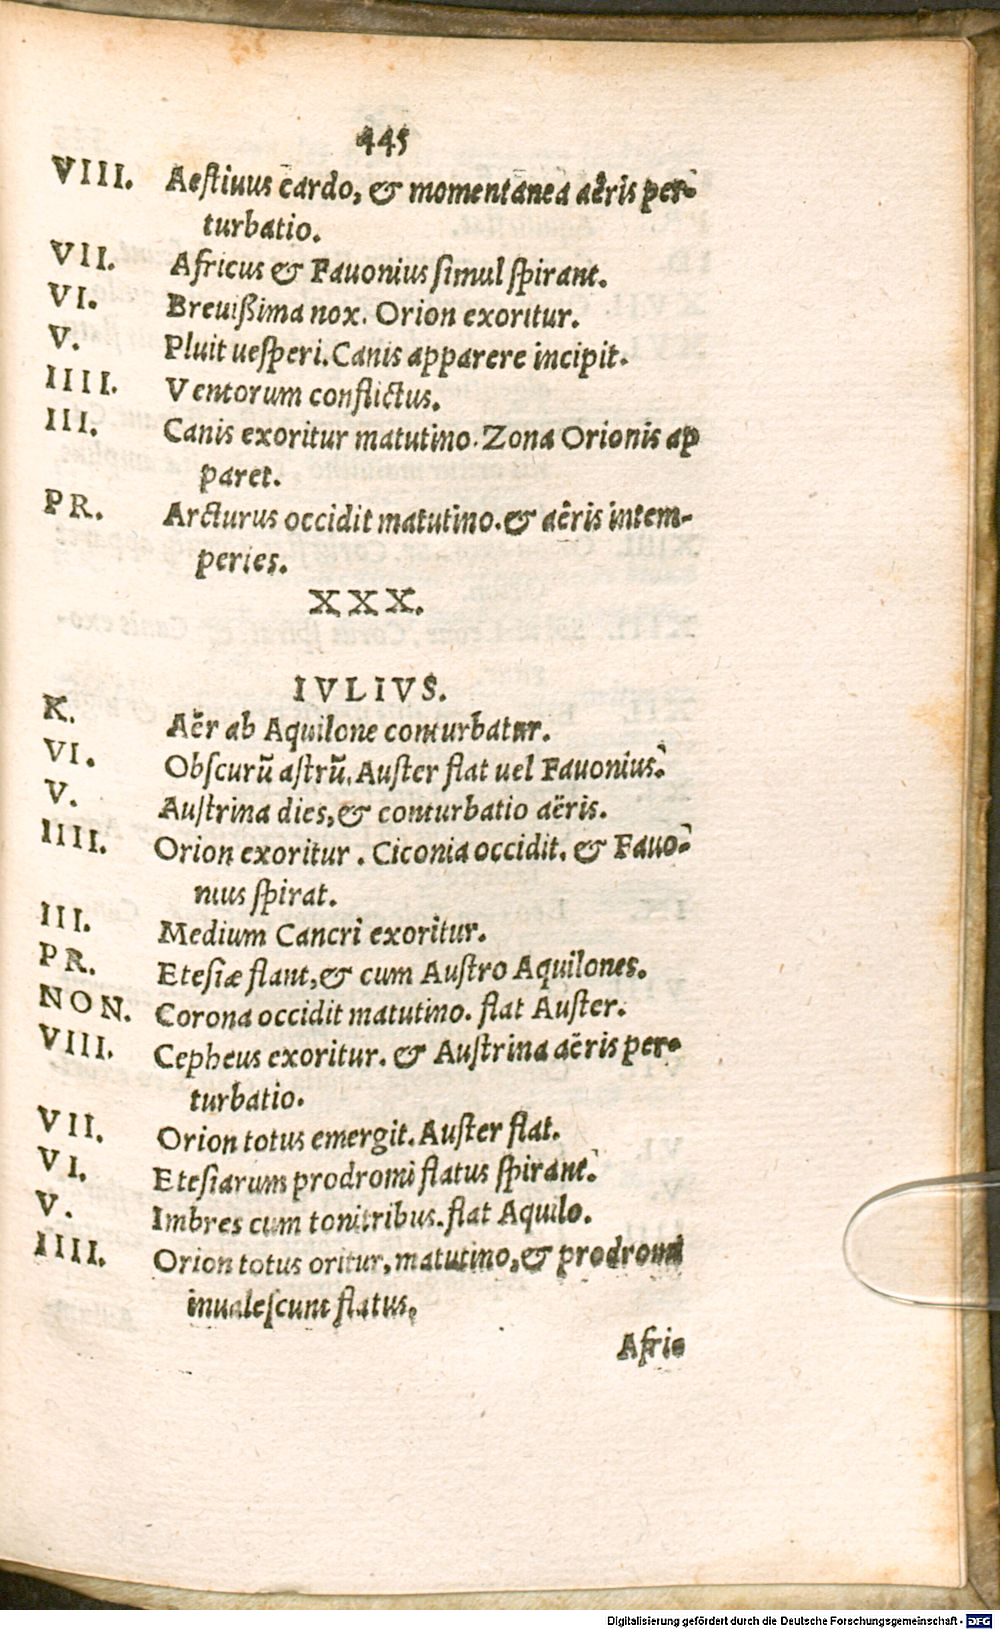 445
VIII. Aestiuus cardo, & momentanea aëris per-
turbatio.
VII. Africus & Fauonius simul spirant.
VI. Breuißima nox. Orion exoritur.
V. Pluit uesperi. Canis apparere incipit.
IIII. Ventorum conflictus.
III. Canis exoritur matutino. Zona Orionis ap
paret.
PR. Arcturus occidit matutino. & aëris intem-
peries.
XXX.
IVLIVS.
K. Aër ab Aquilone conturbatur.
VI. Obscurū astrū. Auster flat uel Fauonius.
V. Austrina dies, & conturbatio aëris.
IIII. Orion exoritur. Ciconia occidit. & Fauo-
nius spirat.
III. Medium Cancri exoritur.
PR. Etesiæ flant, & cum Austro Aquilones.
NON. Corona occidit matutino. flat Auster.
VIII. Cepheus exoritur. & Austrina aëris per-
turbatio.
VII. Orion totus emergit. Auster flat.
VI. Etesiarum prodromi flatus spirant.
V. Imbres cum tonitribus. flat Aquilo.
IIII. Orion totus oritur, matutino, & prodromi
inualescunt flatus.
Afric
Digitalisierung gefördert durch die Deutsche Forschungsgemeinschaft - DFG